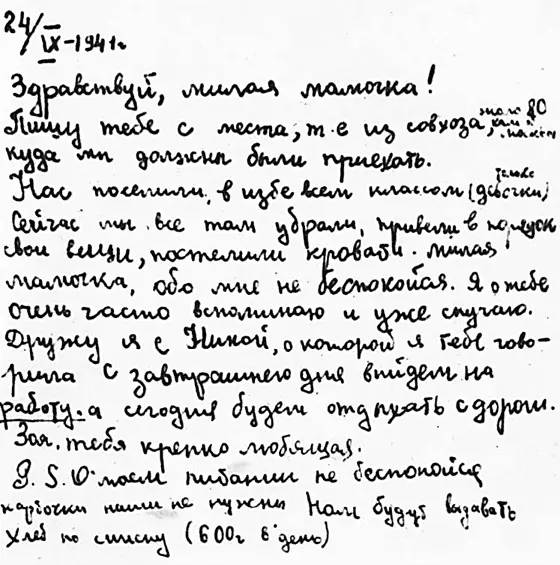 24/IX-1941г.
Здравствуй, милая мамочка!
Пишу тебе с места, т.е из совхоза,
куда мы должны были приехать.
Нас поселили в избе всем классом (девочки)
Сейчас мы все там убрали, привели в порядок
свои вещи, постелили кровати. милая
мамочка, обо мне не беспокойся. Я о тебе
очень часто вспоминаю и уже скучаю.
Дружу я с Никой, о которой я тебе гово-
рила с завтрашнего дня выйдем на
работу. а сегодня будем отдыхать с дороги.
Зоя. тебя крепко любящая.
P.S. О моем питании не беспокойся
карточки наши не нужны Нам будут выдавать
хлеб по списку (600г в день)